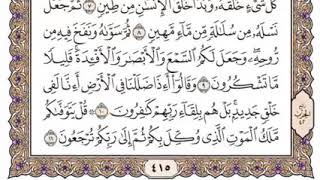 كُلَّ شَيْءٍ خَلَقَهُۥ وَبَدَأَ خَلْقَ ٱلْإِنسَٰنِ مِن طِينٍ ٧ ثُمَّ جَعَلَ
نَسْلَهُۥ مِن سُلَٰلَةٍ مِّن مَّآءٍ مَّهِينٍ ٨ ثُمَّ سَوَّىٰهُ وَنَفَخَ فِيهِ مِن
رُّوحِهِۦ وَجَعَلَ لَكُمُ ٱلسَّمْعَ وَٱلْأَبْصَٰرَ وَٱلْأَفْـِٔدَةَ قَلِيلًا
مَّا تَشْكُرُونَ ٩ وَقَالُوٓا۟ أَءِذَا ضَلَلْنَا فِى ٱلْأَرْضِ أَءِنَّا لَفِى
خَلْقٍ جَدِيدٍۭ بَلْ هُم بِلِقَآءِ رَبِّهِمْ كَٰفِرُونَ ١٠ قُلْ يَتَوَفَّىٰكُم
مَّلَكُ ٱلْمَوْتِ ٱلَّذِى وُكِّلَ بِكُمْ ثُمَّ إِلَىٰ رَبِّكُمْ تُرْجَعُونَ ١١
٤١٥